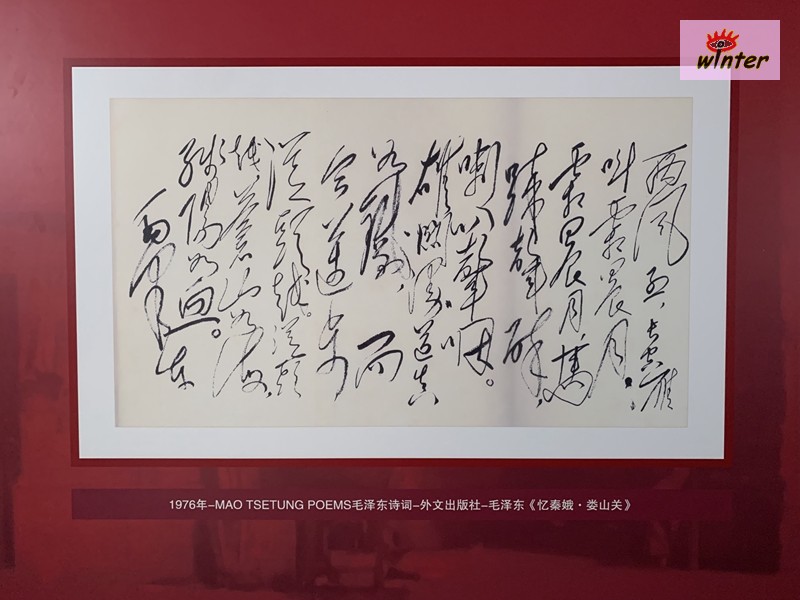 西风烈，長空雁
叫霜晨月。
霜晨月，馬
蹄聲碎，
喇叭聲咽。
雄關漫道真
如鐵，而
今邁步
從頭越。從頭
越，蒼山如海，
殘陽如血。
毛澤東
1976年-MAO TSETUNG POEMS毛泽东诗词-外文出版社-毛泽东《忆秦娥·娄山关》
winter